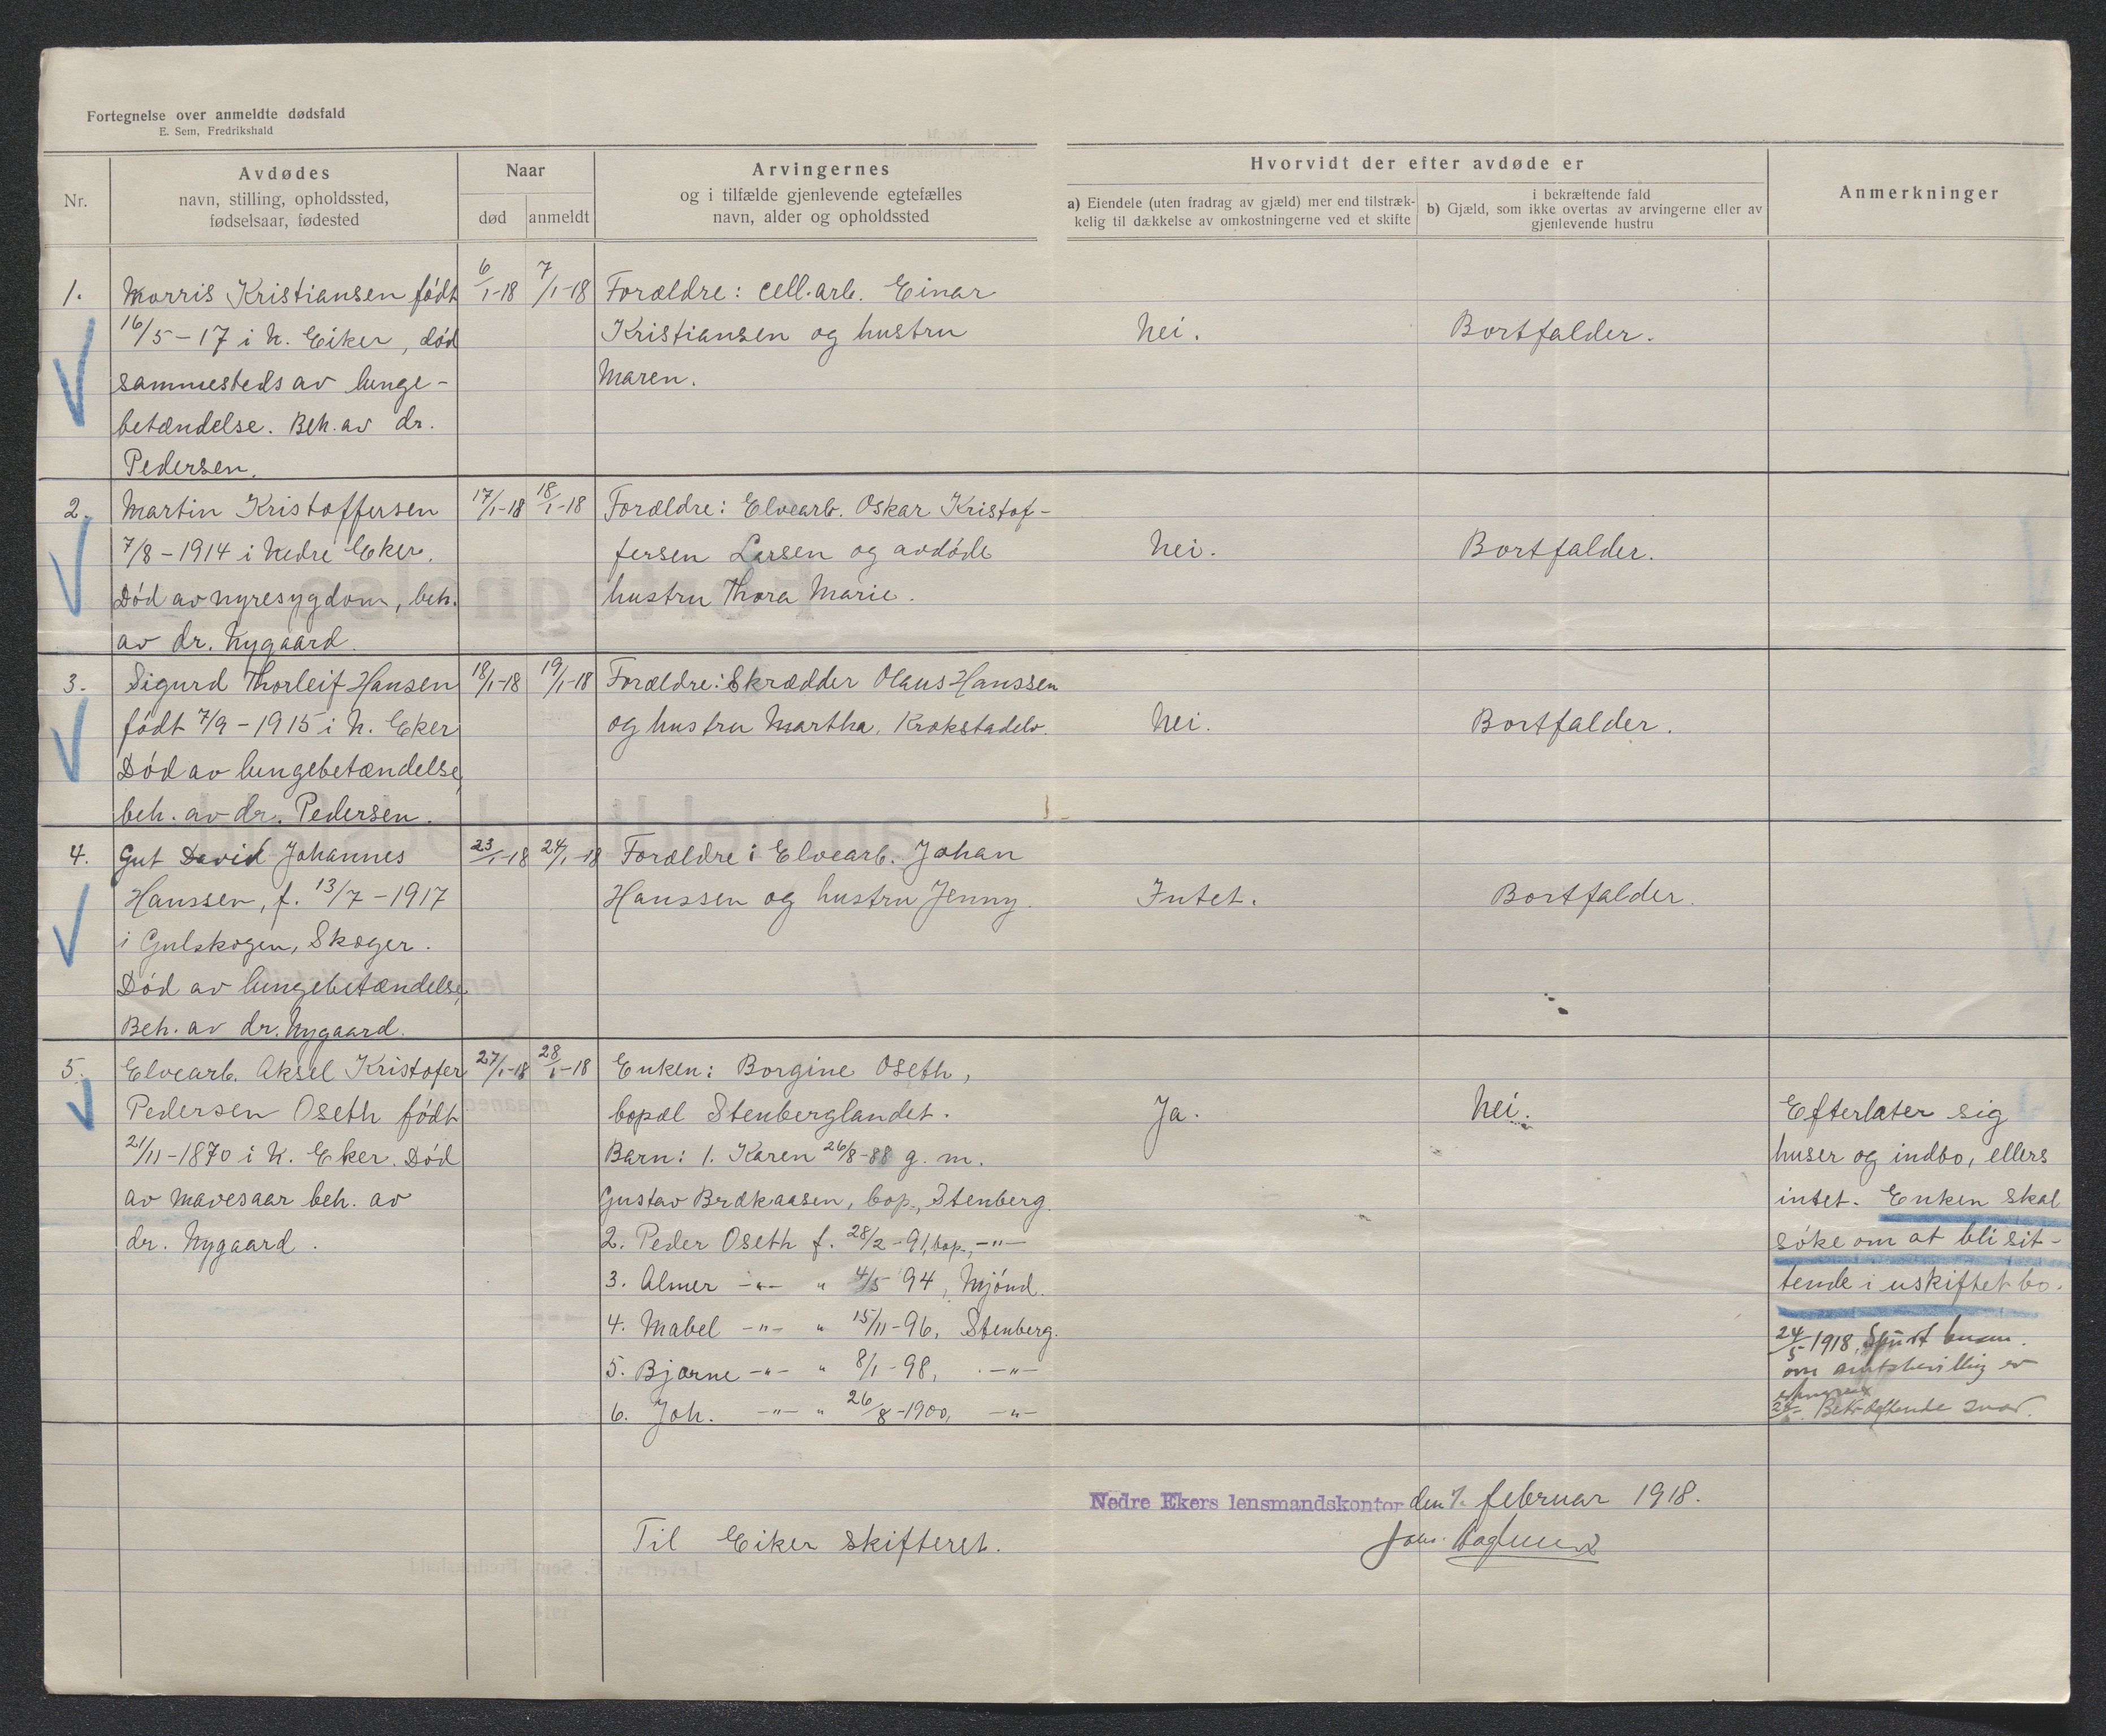 Fortegnelse over anmeldte dødsfald
E. Sem, Fredrikshald
Nr.
Avdødes
navn, stilling, opholdssted,
fødselsaar, fødested
Naar
død
anmeldt
Arvingernes
og i tilfælde gjenlevende egtefælles
navn, alder og opholdssted
Hvorvidt der efter avdøde er
a) Eiendele (uten fradrag av gjæld) mer end tilstræk-
kelig til dækkelse av omkostningerne ved et skifte
i bekræftende fald
b) Gjæld, som ikke overtas av arvingerne eller av
gjenlevende hustru
Anmerkninger
1.
Morris Kristiansen født
16/5-17 i N. Eiker, død
sammesteds av lunge-
betændelse. Beh. av dr.
Pedersen.
6/1-18
7/1-18
Forældre: cell.arb. Einar
Kristiansen og hustru
Maren.
Nei.
Bortfalder.
2.
Martin Kristoffersen
7/8-1914 i Nedre Eker.
Død av nyresygdom, beh.
av dr. Nygaard.
17/1-18
18/1-18
Forældre: Elvearb. Oskar Kristof-
fersen Larsen og avdøde
hustru Thora Marie.
Nei.
Bortfalder.
3.
Sigurd Thorleif Hansen
født 7/9-1915 i N. Eker
Død av lungebetændelse,
beh. av dr. Pedersen.
18/1-18
19/1-18
Forældre: Skrædder Olaus Hanssen
og hustru Martha, Krokstadelv.
Nei.
Bortfalder.
4.
Gut David Johannes
Hanssen, f. 13/7-1917
i Gulskogen, Skoger.
Død av lungebetændelse,
Beh. av dr. Nygaard.
23/1-18
24/1-18
Forældre: Elvearb. Johan
Hanssen og hustru Jenny.
Intet.
Bortfalder.
5.
Elvearb. Aksel Kristofer
Pedersen Oseth født
21/11-1870 i N. Eker. Død
av mavesaar beh. av
dr. Nygaard.
27/1-18
28/1-18
Enken: Borgine Oseth,
bopæl Stenberglandet.
Barn: 1. Karen 26/8-88 g. m.
Gustav Brækaasen, bop., Stenberg.
2. Peder Oseth f. 28/2-91, bop., -"-
3. Almer -"- " 4/5 94, Mjønd.
4. Mabel -"- " 15/11-96, Stenberg.
5. Bjarne -"- " 8/1-98, -"-
6. Joh. -"- " 26/8-1900, -"-
Ja.
Nei.
Efterlater sig
huser og indbo, ellers
intet. Enken skal
søke om at bli sit-
tende i uskiftet bo.
24/5 1918, Spurt
om amtsbevilling er
Bekræftende svar.
Nedre Ekers lensmandskontor den 7. februar 1918.
Til Eiker skifteret.